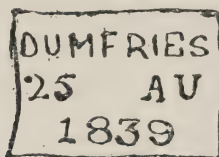 DUMFRIES
25 AU
1839